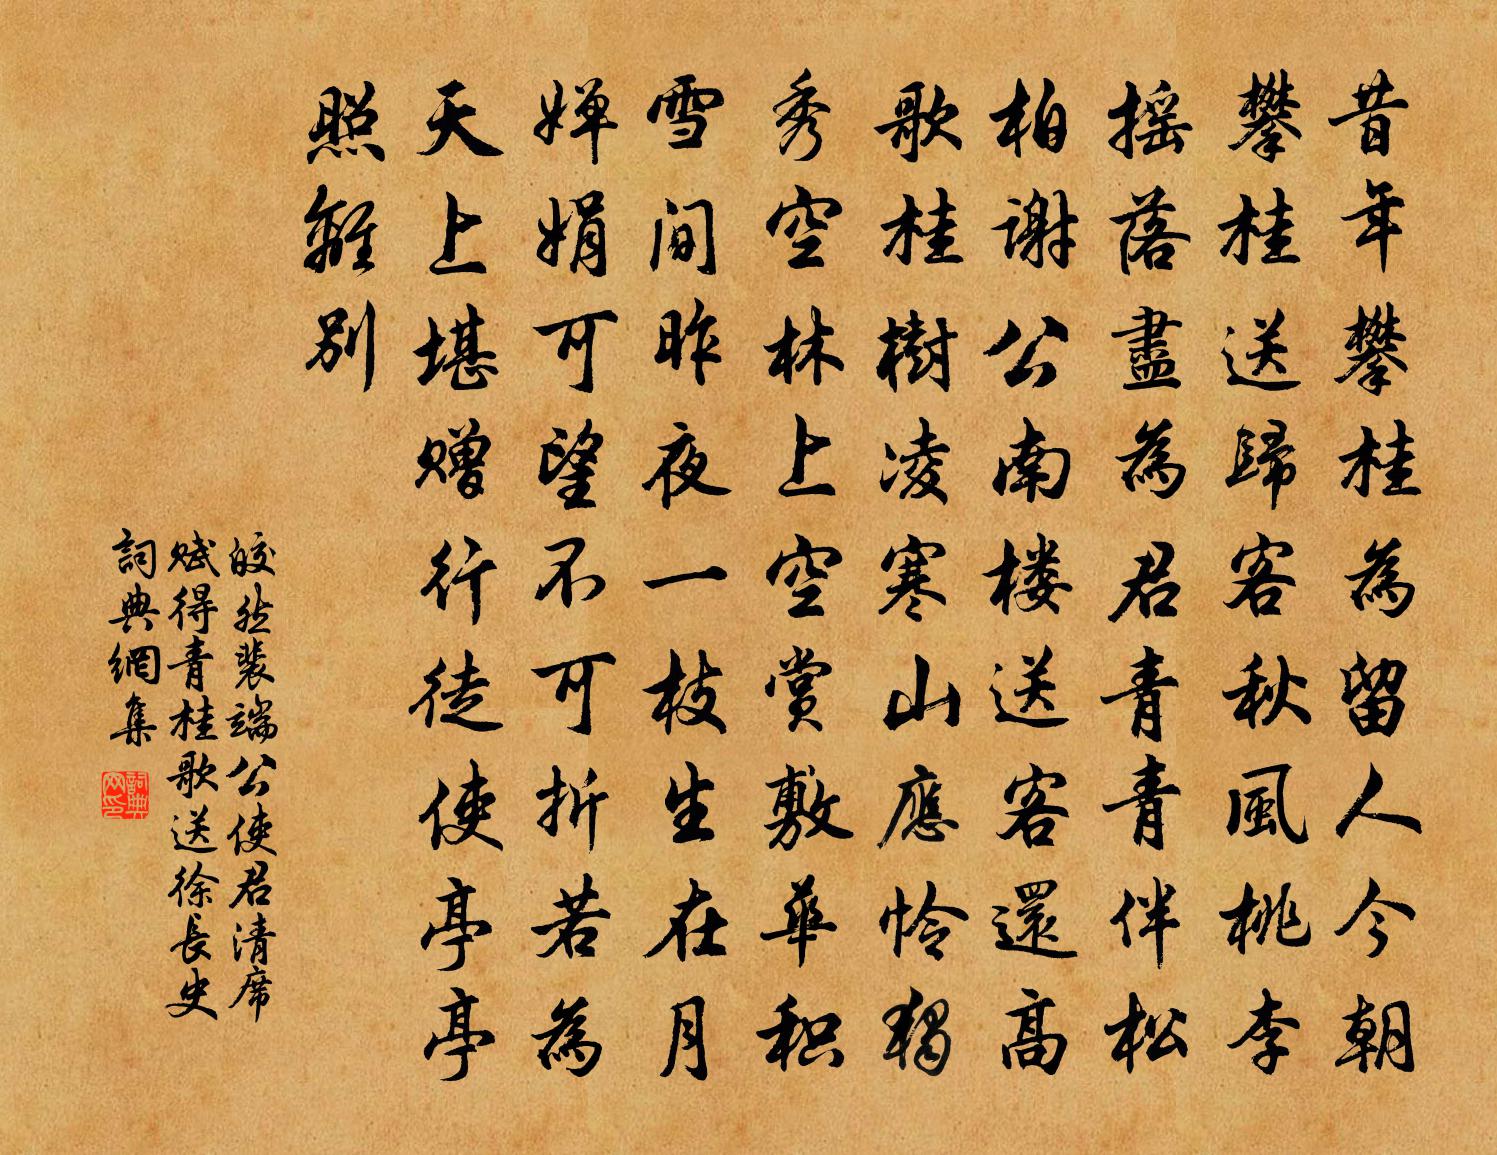 昔年攀桂為留人今朝
攀桂送歸客秋風桃李
摇落盡為君青青伴松
柏謝公南楼送客還高
歌桂樹凌寒山應怜獨
秀空林上空賞敷華积
雪间昨夜一枝生在月
婵娟可望不可折若為
天上堪赠行徒使亭亭
照離别
皎然裴端公使君清席
赋得青桂歌送徐長史
詞典網集
詞典网印